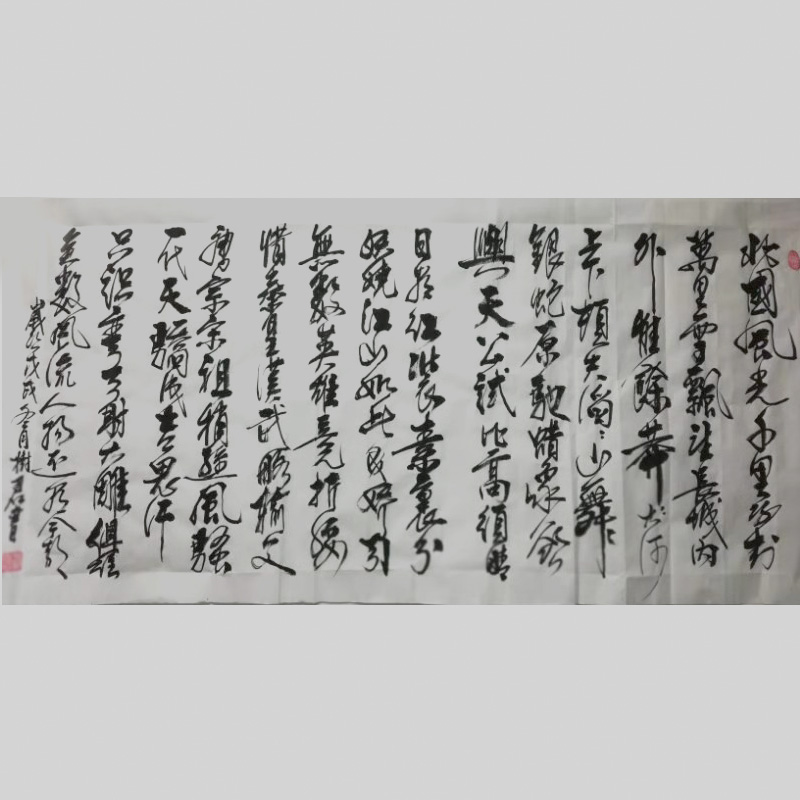 北國風光千里冰封
萬里雪飄望長城內
外惟餘莽〻大河
上下頓失滔〻山舞
銀蛇原馳蠟象欲
與天公試比高須晴
日看紅裝素裹分
妖嬈江山如此多嬌引
無數英雄競折腰
惜秦皇漢武略輸文
唐宗宋祖稍遜風騷
一代天驕成吉思汗
只識彎弓射大雕俱往
矣數風流人物還看今朝
歲次戊戌冬月樹君書